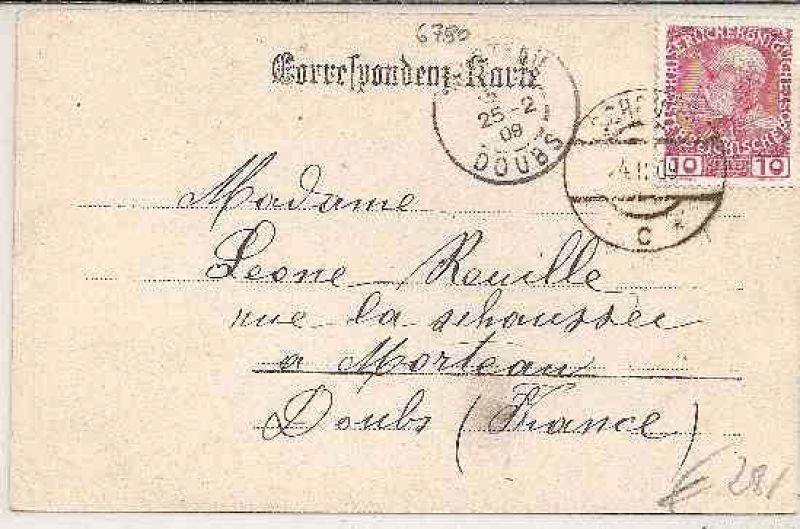 6750
Correspondenz-Karte
25-2
09
DOUBS
10 10
C *
Madame
Leone Rouille
rue la schaussée
a Morteau
Doubs (France)
€ 28/